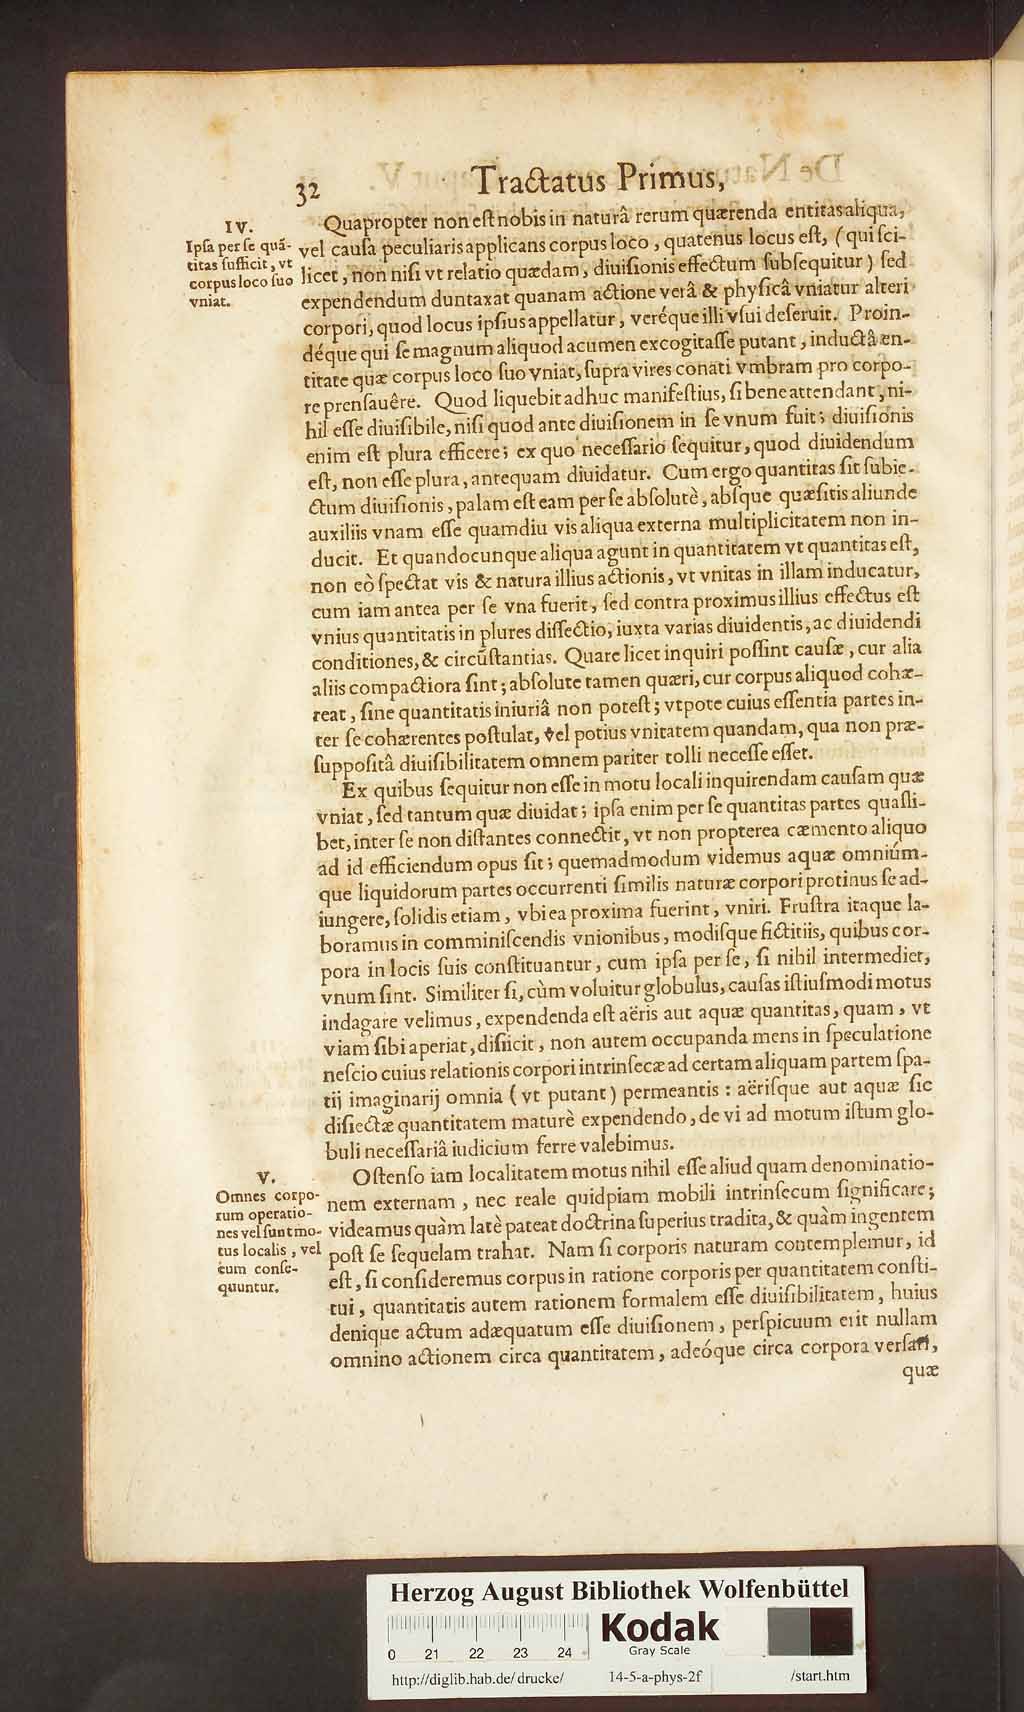 32 Tractatus Primus,
IV.
Ipſa per ſe quã-
titas ſufficit, vt
corpus loco ſuo
vniat.
Quapropter non eſt nobis in naturâ rerum quærenda entitas aliqua,
vel cauſa peculiaris applicans corpus loco, quatenus locus eſt, (qui ſci-
licet, non niſi vt relatio quædam, diuiſionis effectum ſubſequitur) ſed
expendendum duntaxat quanam actione verâ & phyſicâ vniatur alteri
corpori, quod locus ipſius appellatur, veréque illi vſui deſeruit. Proin-
déque qui ſe magnum aliquod acumen excogitaſſe putant, inductâ en-
titate quæ corpus loco ſuo vniat, ſupra vires conati vmbram pro corpo-
re prenſauêre. Quod liquebit adhuc manifeſtius, ſi bene attendant, ni-
hil eſſe diuiſibile, niſi quod ante diuiſionem in ſe vnum fuit; diuiſionis
enim eſt plura efficere; ex quo neceſſario ſequitur, quod diuidendum
eſt, non eſſe plura, antequam diuidatur. Cum ergo quantitas ſit ſubie-
ctum diuiſionis, palam eſt eam per ſe abſolutè, abſque quæſitis aliunde
auxiliis vnam eſſe quamdiu vis aliqua externa multiplicitatem non in-
ducit. Et quandocunque aliqua agunt in quantitatem vt quantitas eſt,
non eò ſpectat vis & natura illius actionis, vt vnitas in illam inducatur,
cum iam antea per ſe vna fuerit, ſed contra proximus illius effectus eſt
vnius quantitatis in plures diſſectio, iuxta varias diuidentis, ac diuidendi
conditiones, & circũſtantias. Quare licet inquiri poſſint cauſæ, cur alia
aliis compactiora ſint; abſolute tamen quæri, cur corpus aliquod cohæ-
reat, ſine quantitatis iniuriâ non poteſt; vtpote cuius eſſentia partes in-
ter ſe cohærentes poſtulat, vel potius vnitatem quandam, qua non præ-
ſuppoſitâ diuiſibilitatem omnem pariter tolli neceſſe eſſet.
Ex quibus ſequitur non eſſe in motu locali inquirendam cauſam quæ
vniat, ſed tantum quæ diuidat; ipſa enim per ſe quantitas partes quaſli-
bet, inter ſe non diſtantes connectit, vt non propterea cæmento aliquo
ad id efficiendum opus ſit; quemadmodum videmus aquæ omniúm-
que liquidorum partes occurrenti ſimilis naturæ corpori protinus ſe ad-
iungere, ſolidis etiam, vbi ea proxima fuerint, vniri. Fruſtra itaque la-
boramus in comminiſcendis vnionibus, modiſque fictitiis, quibus cor-
pora in locis ſuis conſtituantur, cum ipſa per ſe, ſi nihil intermediet,
vnum ſint. Similiter ſi, cùm voluitur globulus, cauſas iſtiuſmodi motus
indagare velimus, expendenda eſt aëris aut aquæ quantitas, quam, vt
viam ſibi aperiat, diſiicit, non autem occupanda mens in ſpeculatione
neſcio cuius relationis corpori intrinſecæ ad certam aliquam partem ſpa-
tij imaginarij omnia (vt putant) permeantis: aëriſque aut aquæ ſic
diſiectæ quantitatem maturè expendendo, de vi ad motum iſtum glo-
buli neceſſariâ iudicium ferre valebimus.
V.
Omnes corpo-
rum operatio-
nes vel ſunt mo-
tus localis, vel
eum conſe-
quuntur.
Oſtenſo iam localitatem motus nihil eſſe aliud quam denominatio-
nem externam, nec reale quidpiam mobili intrinſecum ſignificare;
videamus quàm latè pateat doctrina ſuperius tradita, & quàm ingentem
poſt ſe ſequelam trahat. Nam ſi corporis naturam contemplemur, id
eſt, ſi conſideremus corpus in ratione corporis per quantitatem conſti-
tui, quantitatis autem rationem formalem eſſe diuiſibilitatem, huius
denique actum adæquatum eſſe diuiſionem, perſpicuum erit nullam
omnino actionem circa quantitatem, adeóque circa corpora verſari,
quæ
Herzog August Bibliothek Wolfenbüttel
0 21 22 23 24
Kodak
Gray Scale
http://diglib.hab.de/drucke/ 14-5-a-phys-2f /start.htm